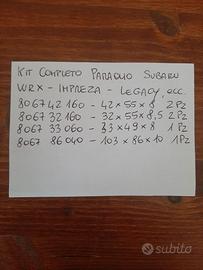 KIT COMPLETO PARAOLIO SUBARU
WRX - IMPREZA - LEGACY, ecc.
806742160 - 42x55x8 2Pz
806732160 - 32x55x8,5 2Pz
806733060 - 33x49x8 1Pz
806786040 - 103x86x10 1Pz
subito